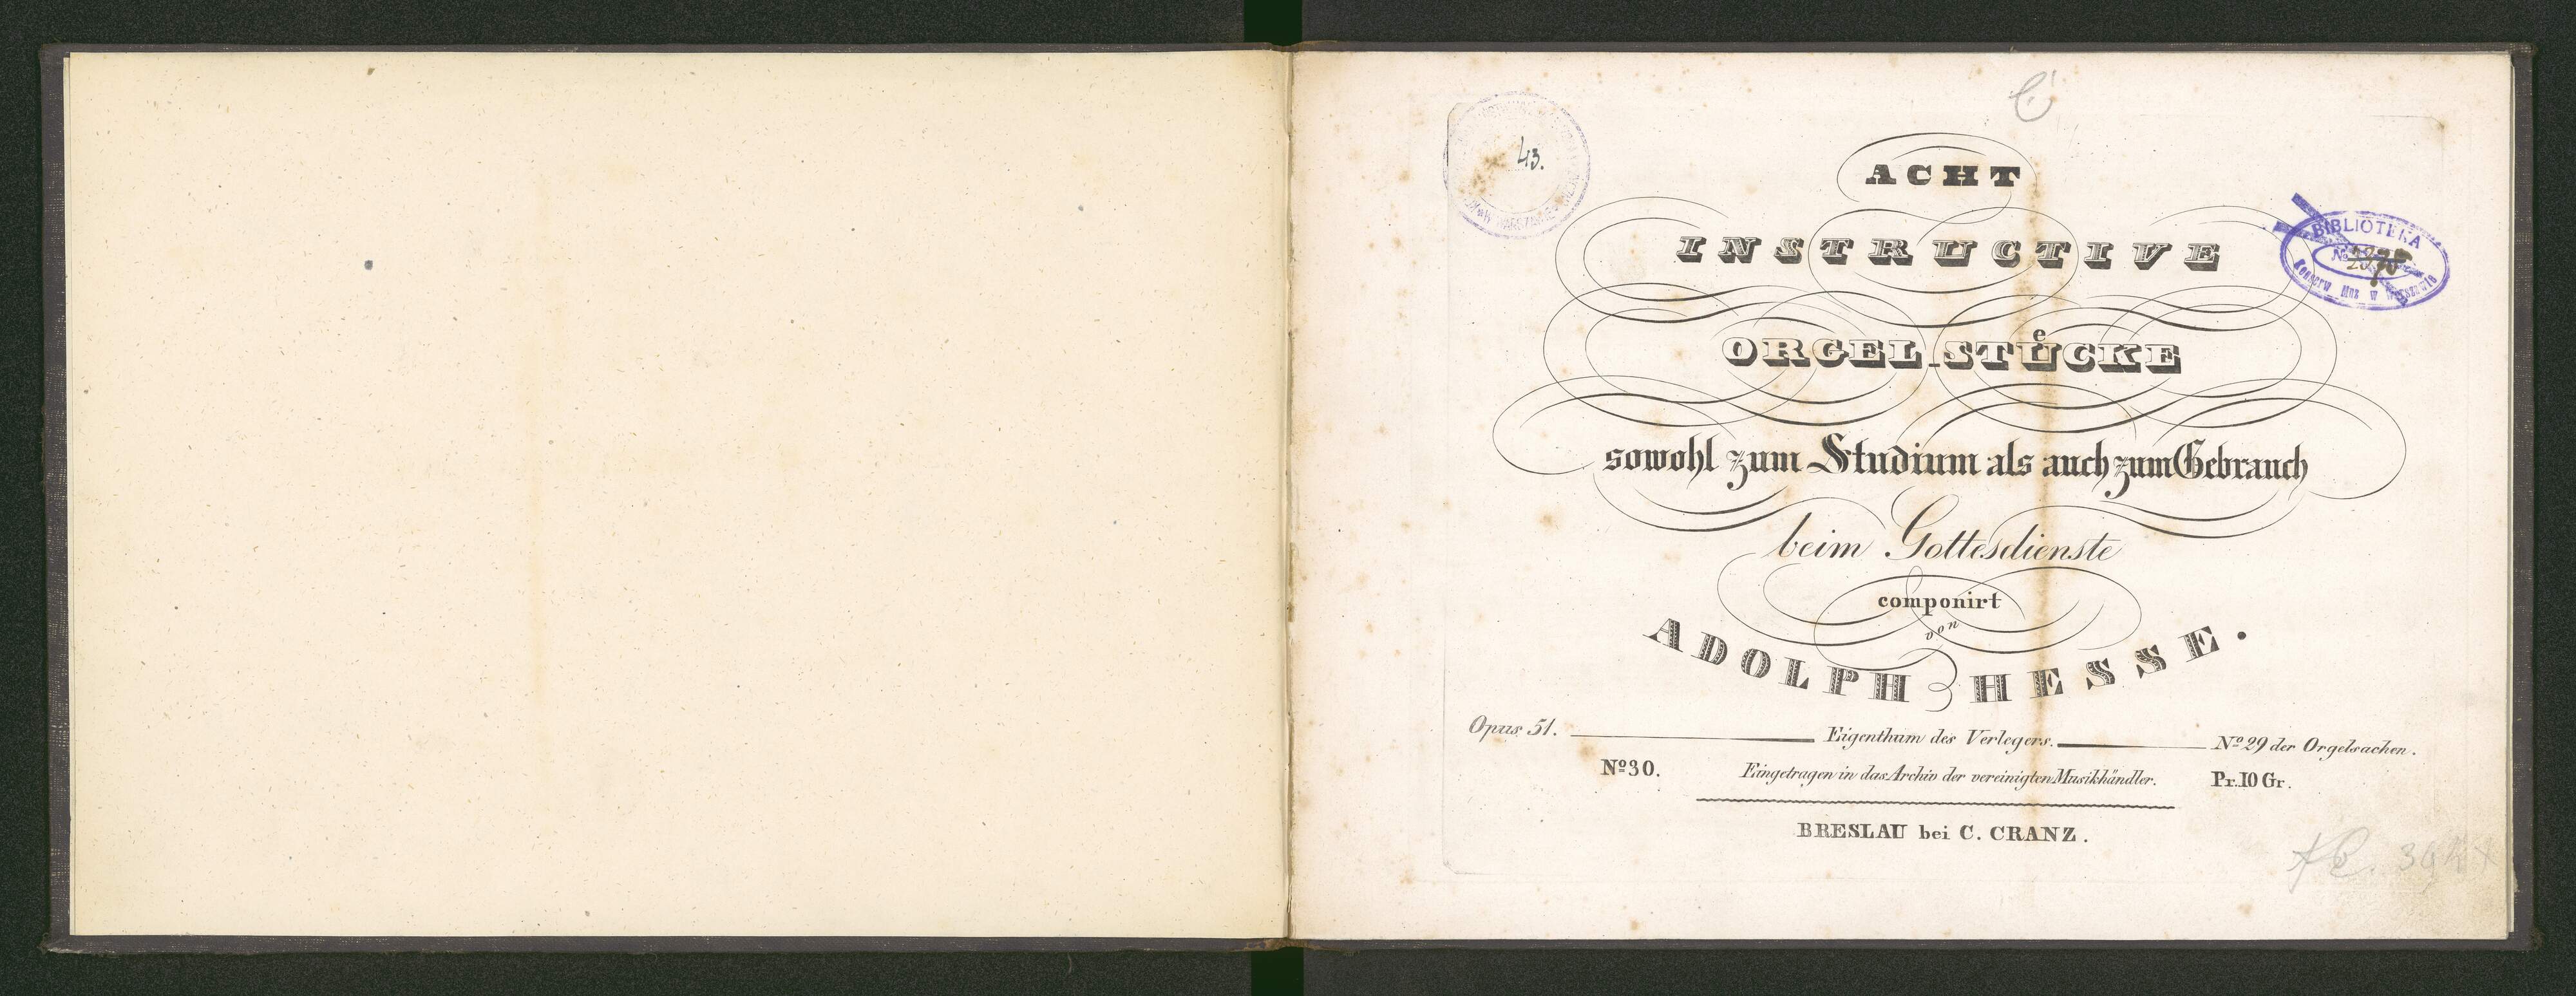 43.
ACHT
INSTRUCTIVE
BIBLIOTEKA
No
Konserw Muz w Warszawie
ORGEL-STUͤCKE
sowohl zum Studium als auch zum Gebrauch
beim Gottesdienste
componirt
von
ADOLPH HESSE.
Opus 51. Eigenthum des Verlegers. No 29 der Orgelsachen.
No 30. Eingetragen in das Archiv der vereinigten Musikhändler. Pr. 10 Gr.
BRESLAU bei C. CRANZ.